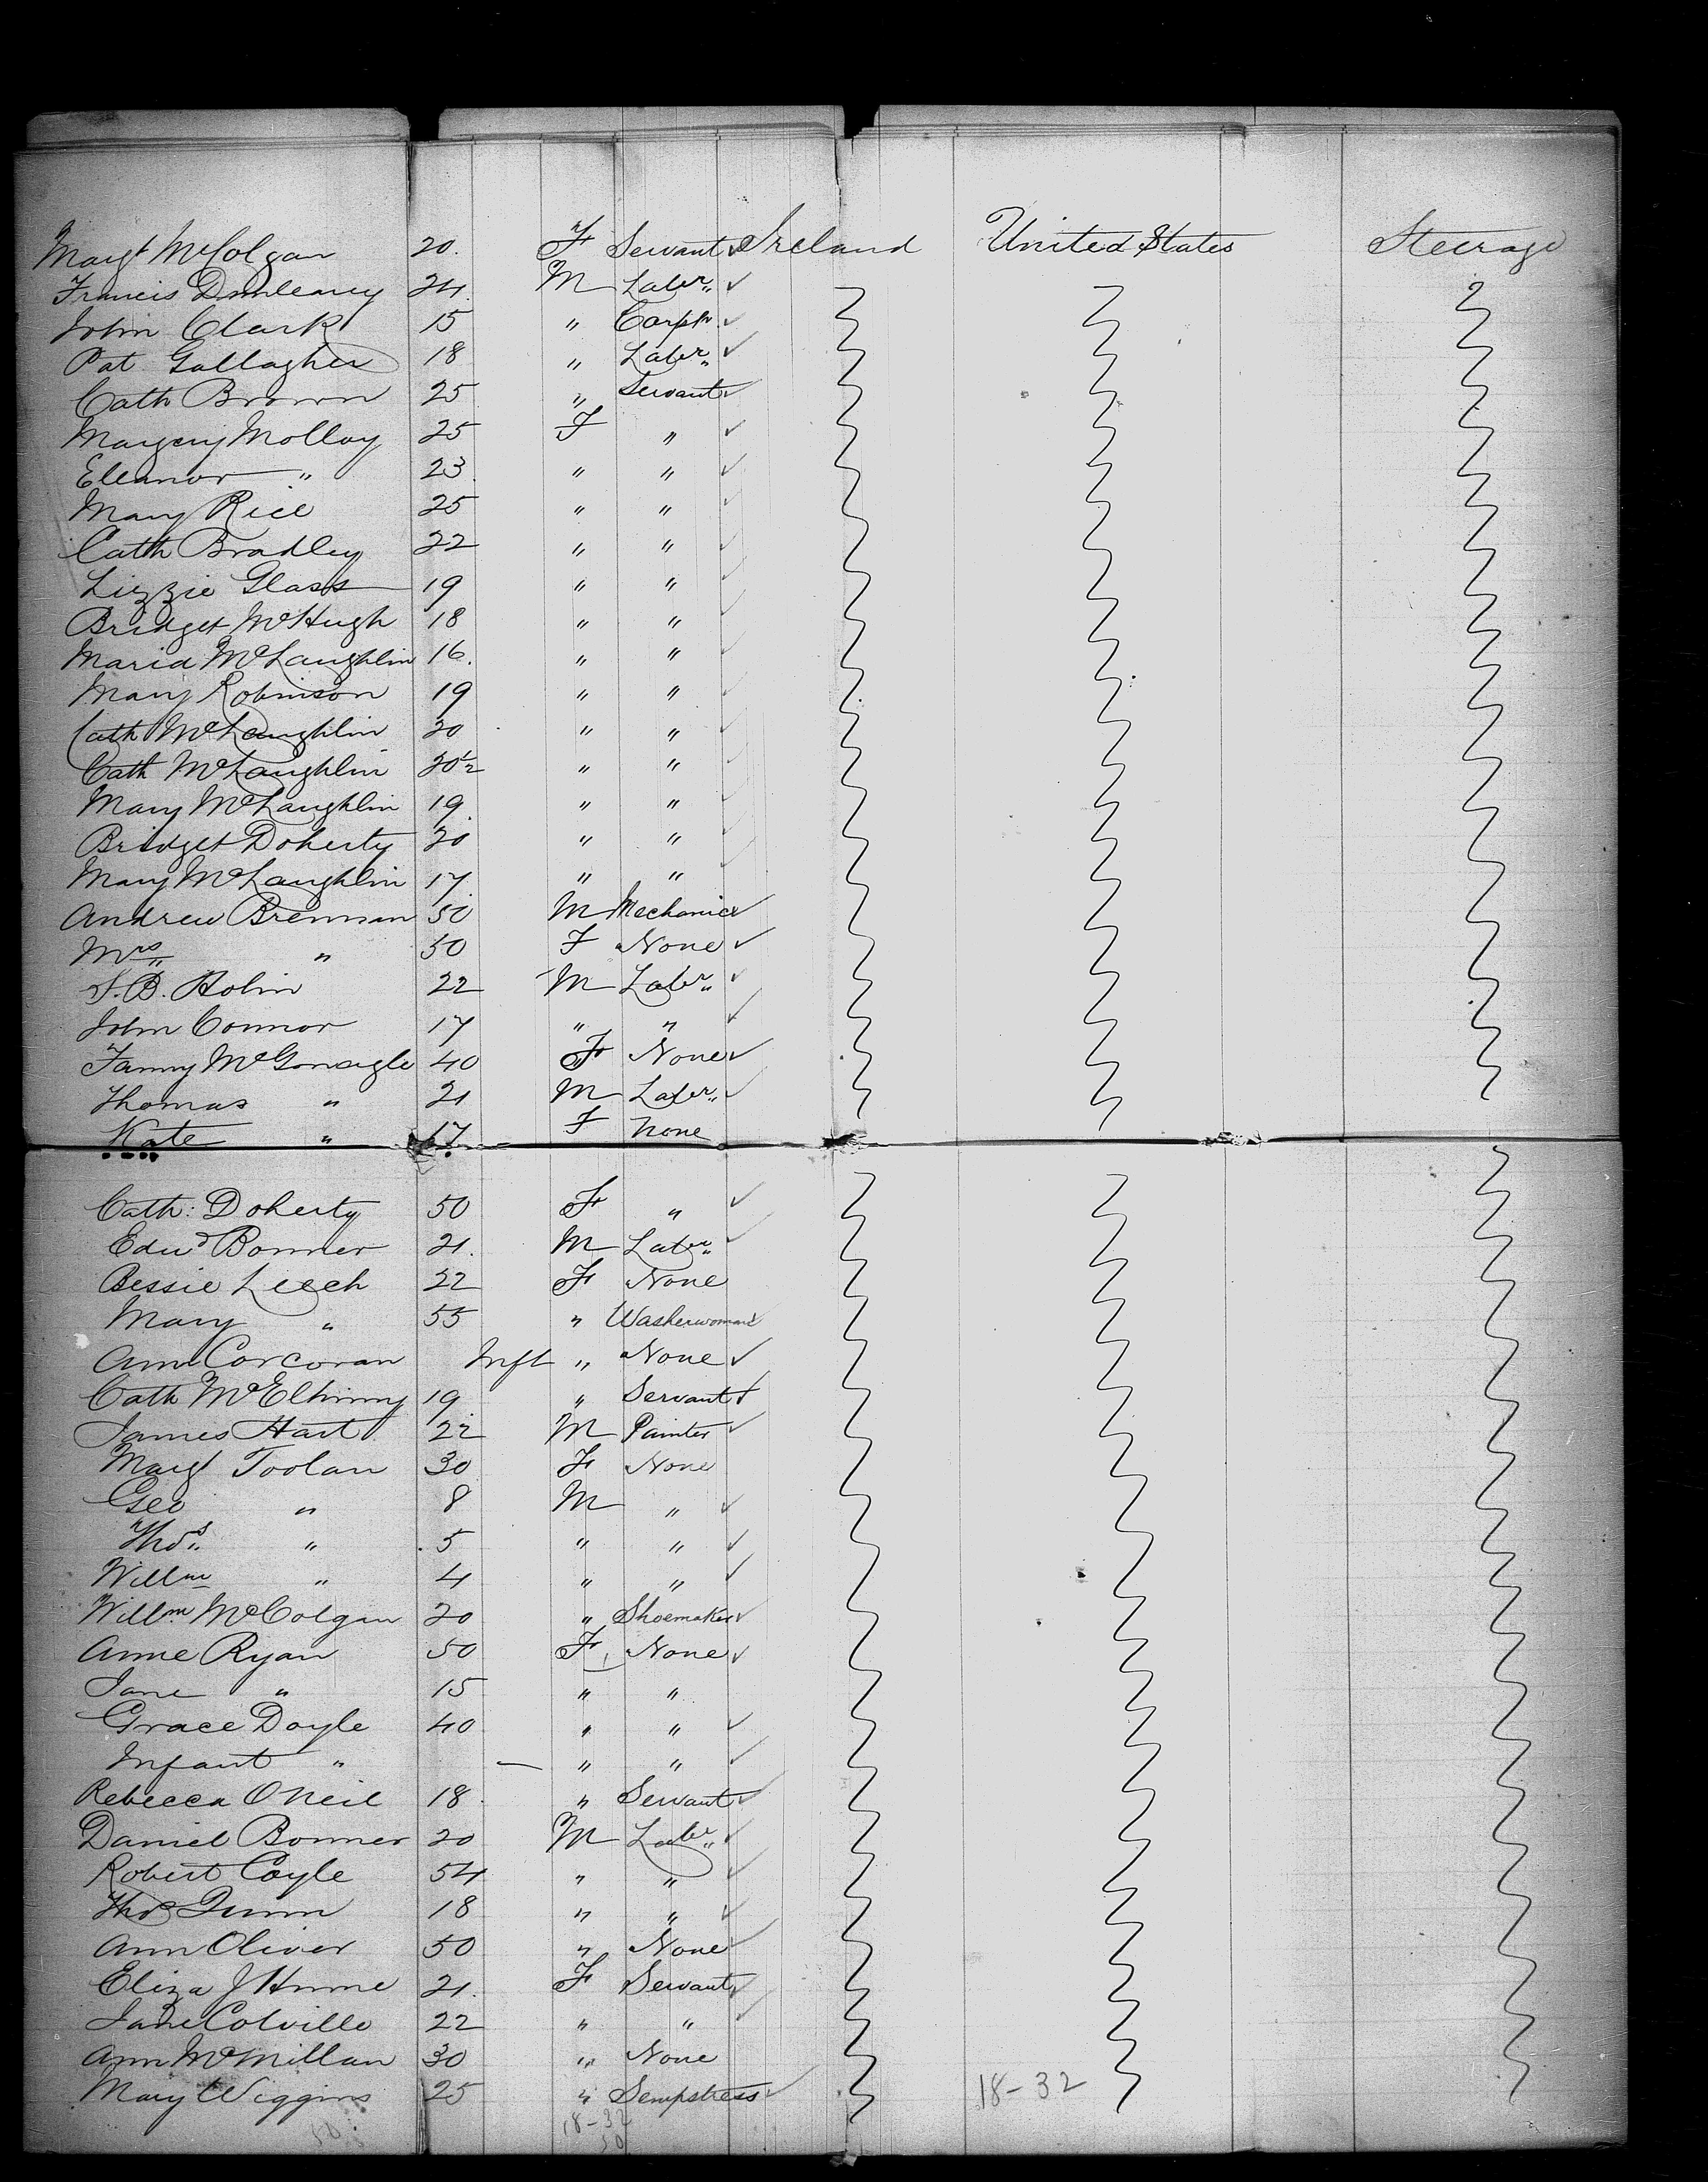 Margt McColgan 20. F Servant Ireland United States Steerage
Francis Dunleavy 24. M Labr.
John Clark 15 " Carptr.
Pat Gallagher 18 " Labr.
Cath Brown 25 " Servant
Margery Molloy 25 F "
Eleanor " 23 " "
Mary Rice 25 " "
Cath Bradley 22 " "
Lizzie Glass 19 " "
Bridget McHugh 18 " "
Maria McLaughlin 16. " "
Mary Robinson 19 " "
Cath McLaughlin 20 " "
Cath McLaughlin 20½ " "
Mary McLaughlin 19. " "
Bridget Doherty 20 " "
Mary McLaughlin 17. " "
Andrew Brennan 50 M Mechanic
Mrs " 50 F None
S.B. Holin 22 M Labr.
John Connor 17 " "
Fanny McGonaigle 40 F None
Thomas " 21 M Labr.
Kate " 17 F None
Cath: Doherty 50 F "
Edwd Bonner 21. M Labr.
Bessie Leech 22 F None
Mary " 55 " Washerwoman
Ann Corcoran Inft " None
Cath McElhinny 19. " Servant
James Hart 22 M Painter
Margt Toolan 30 F None
Geo " 8 M "
Thos. " 5 " "
Willm " 4 " "
Willm McColgan 20 " Shoemaker
Anne Ryan 50 F None
Jane " 15 " "
Grace Doyle 40 " "
Infant " — " "
Rebecca ONeil 18. " Servant
Daniel Bonner 20 M Labr.
Robert Coyle 54 " "
Thos Quinn 18 " "
Ann Oliver 50 " None
Eliza J Hume 21. F Servant
Jane Colville 22 " "
Ann McMillan 30 " None
Mary Wiggins 25 " Sempstress 18-32
18-32
50